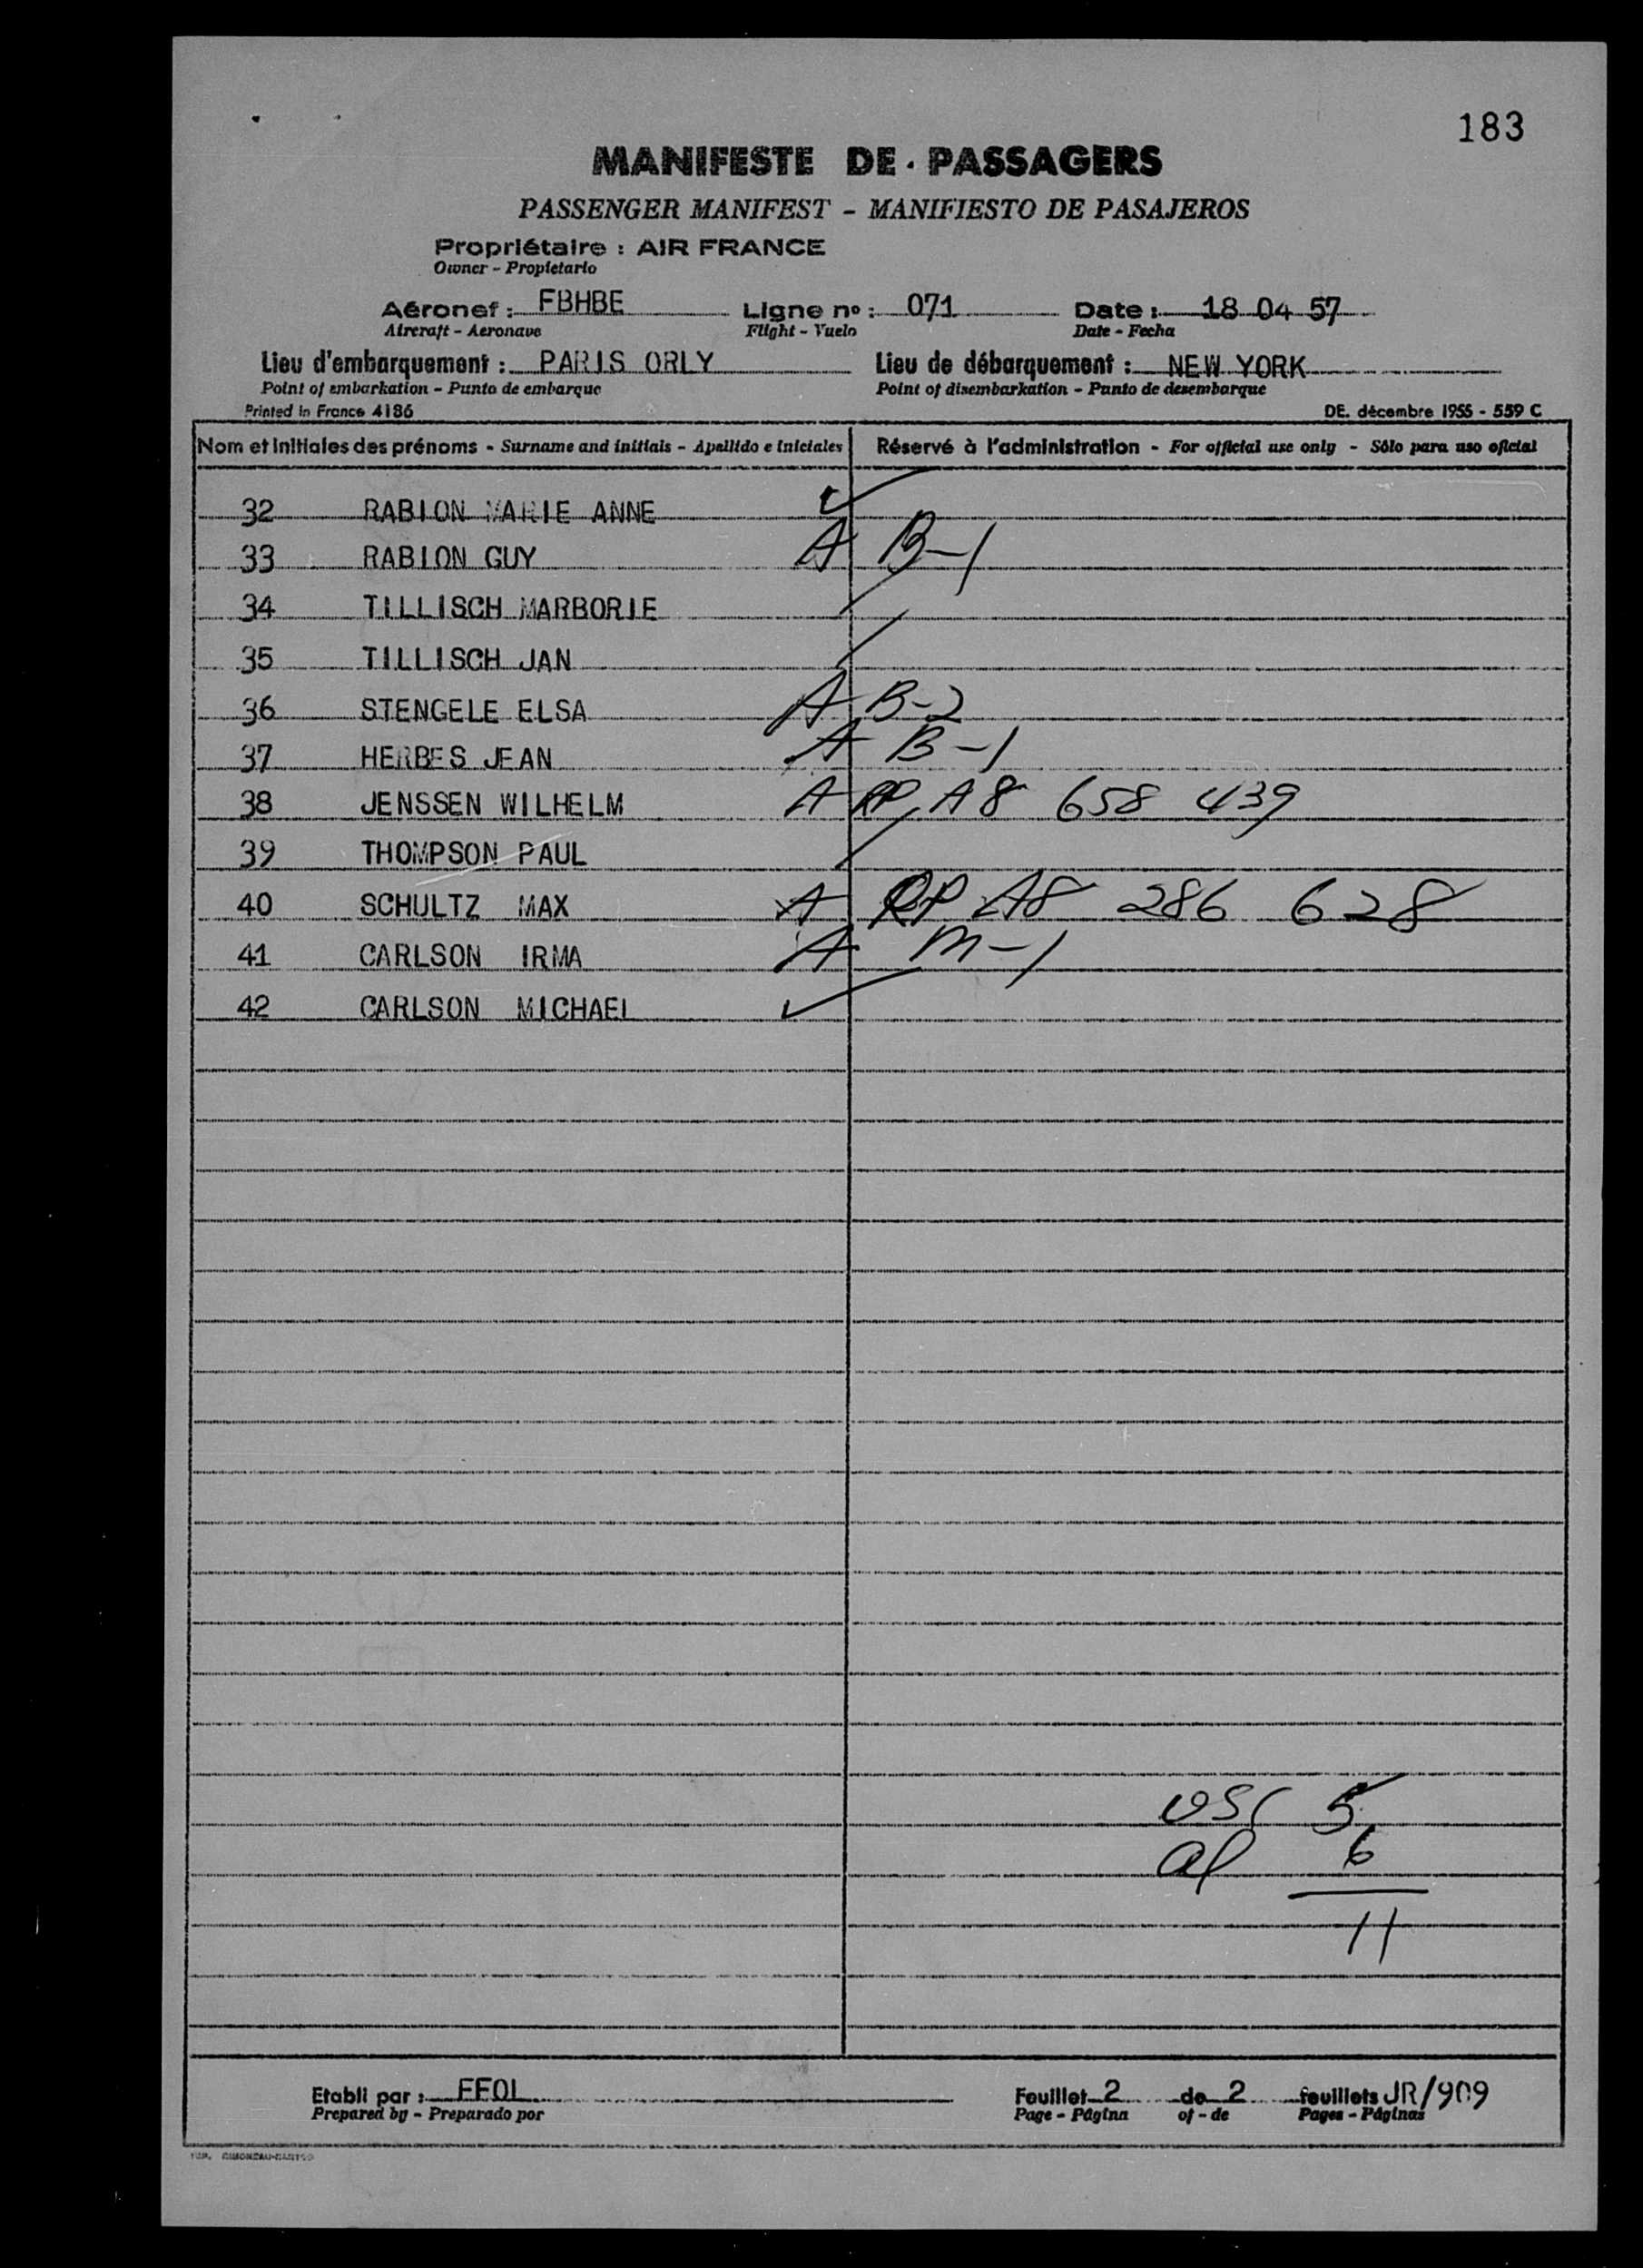 183
MANIFESTE DE PASSAGERS
PASSENGER MANIFEST - MANIFIESTO DE PASAJEROS
Propriétaire : AIR FRANCE
Owner - Propietario
Aéronef : FBHBE Ligne nº : 071 Date : 18 04 57
Aircraft - Aeronave Flight - Vuelo Date - Fecha
Lieu d'embarquement : PARIS ORLY Lieu de débarquement : NEW YORK
Point of embarkation - Punto de embarque Point of disembarkation - Punto de desembarque
Printed in France 4186 DE. décembre 1955 - 559 C
Nom et initiales des prénoms - Surname and initials - Apellido e iniciales Réservé à l'administration - For official use only - Sólo para uso oficial
32 RABION MARIE ANNE
33 RABION GUY A B-1
34 TILLISCH MARBORIE
35 TILLISCH JAN
36 STENGELE ELSA A B-2
37 HERBES JEAN A B-1
38 JENSSEN WILHELM A RP A8 658 439
39 THOMPSON PAUL
40 SCHULTZ MAX A RP A8 286 628
41 CARLSON IRMA A M-1
42 CARLSON MICHAEL
USC 5
al 6
11
Etabli par : FFOL Feuillet 2 de 2 feuillets JR/909
Prepared by - Preparado por Page - Página of - de Pages - Páginas